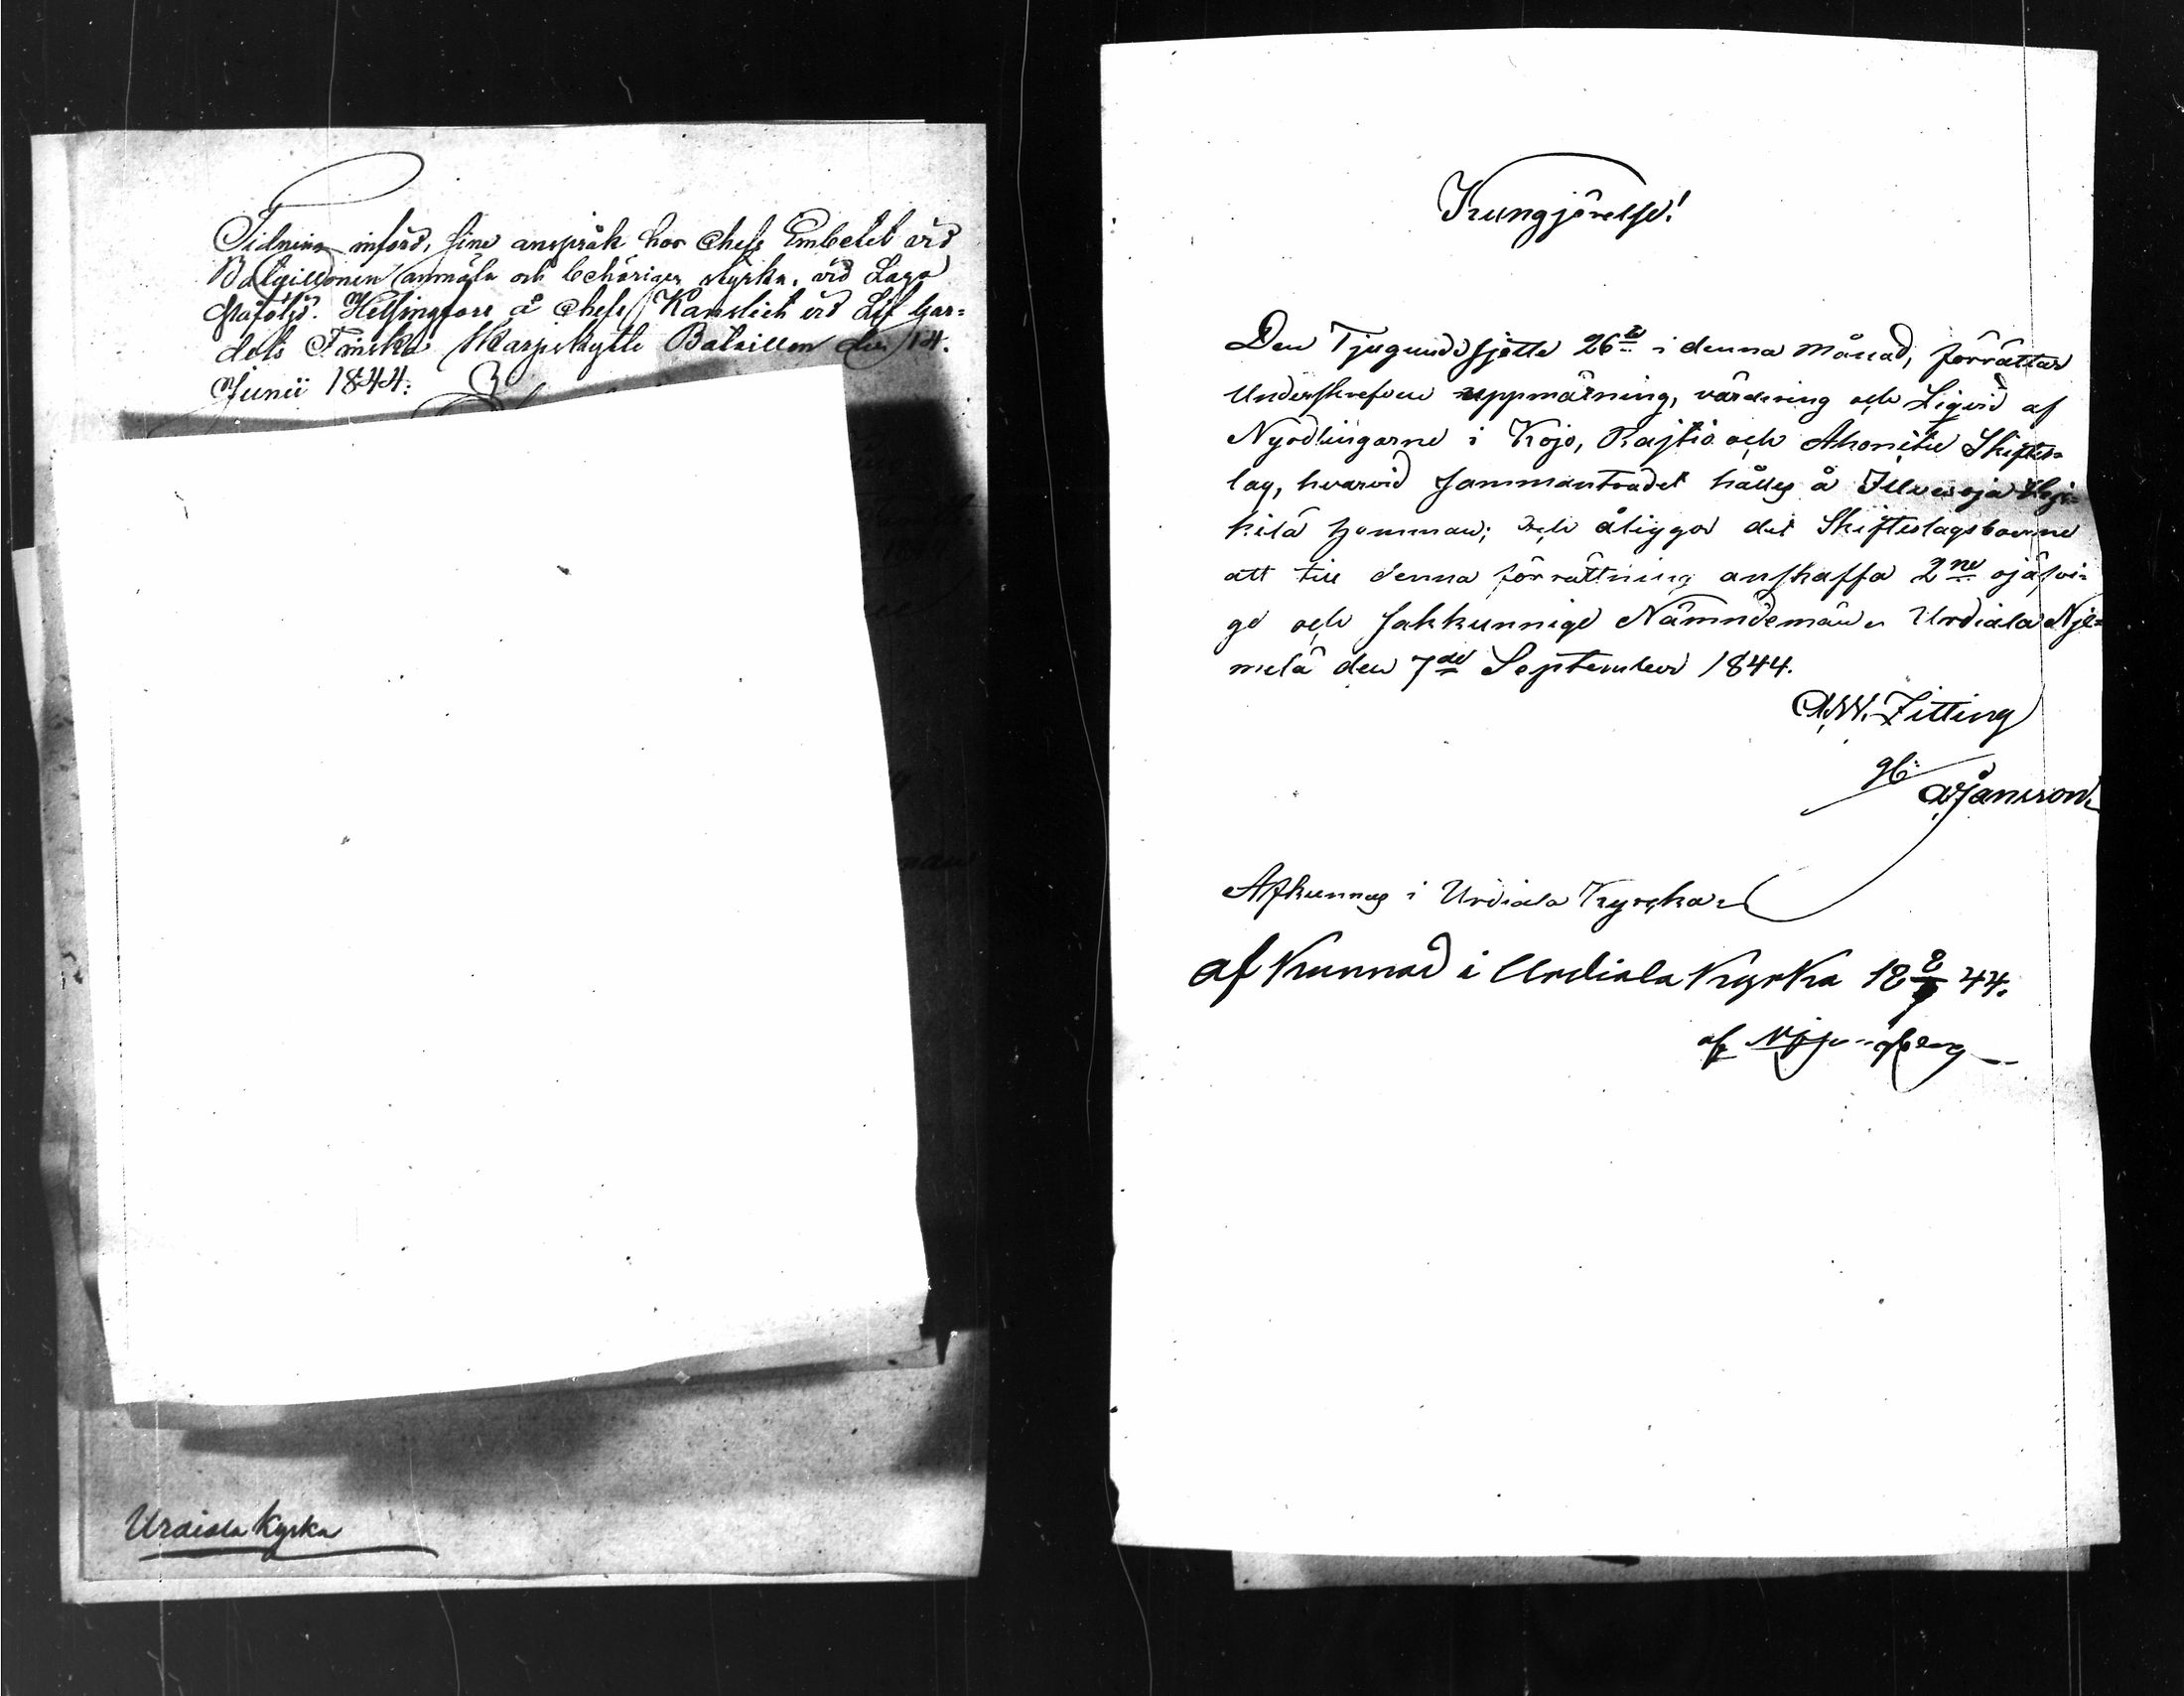 Tidning införd, sine anspråk hos Chefs Embetet vid
Batailldonen anmäla och behörigen styrka, vid Laga
påföljd. Helsingfors å Chefs Kanslict vid Lif Gar=
dets Finska Skarpskytte Bataillon den 14.
Junii 1844.
Urdiala Kyrka
Kungjörelse!
Den Tjugundesjette 26te i denna Månad, förrättar
Underskrefven uppmätning, värdering och Liqvid af
Nyodlingarne i Kojo, Rajtio och Ahonitu Skiftes=
lag, hvarvid Sammanträdet hålles å
kilä hemman; och åligger det Skifteslagsboerne
att till denna förrättning anskaffa 2ne ojäfvi=
ge och Sakkunnige Nämndemän. Urdiala Nje=
melä den 7de September 1844.
A.W. Zitting
A Jansson
Afkunnas i Urdiala Kyrka
afkunnad i Urdiala Kyrka 18 8/9 44.
af